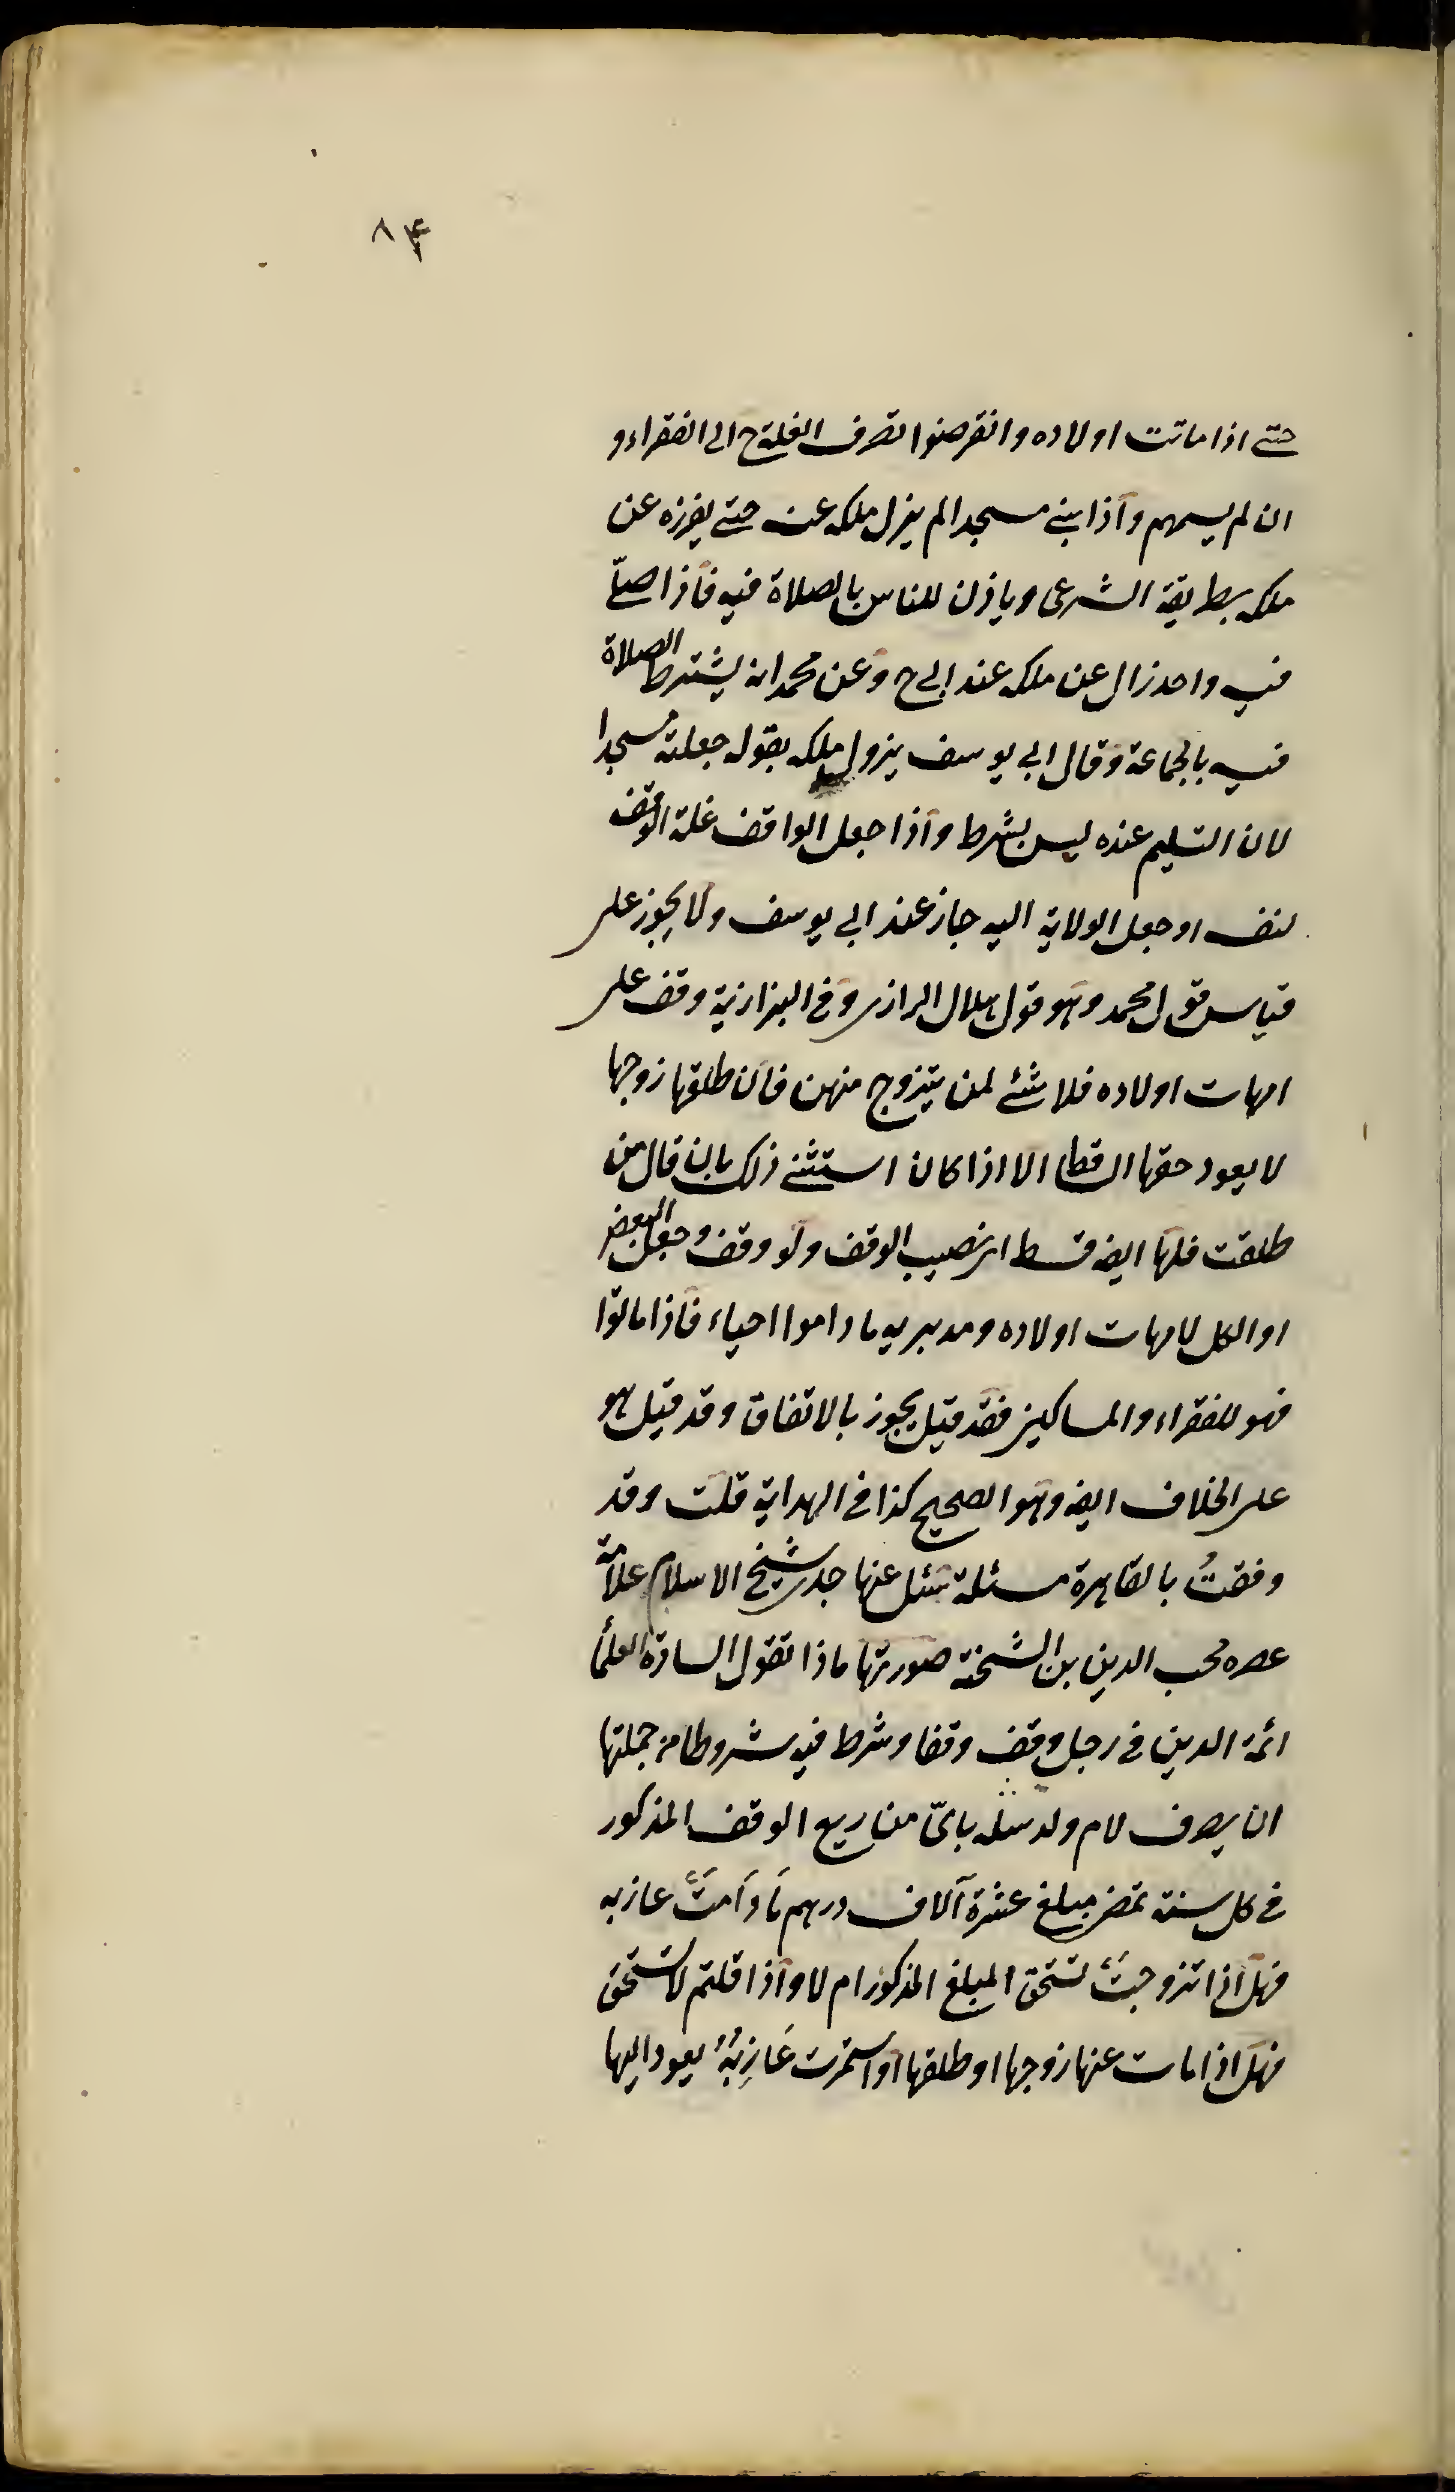 ٨٤
حتى اذا ماتت اولاده وانقرضوا تصرف الغلة ح الى الفقراء و
ان لم يسمهم واذا بنى مسجدا لم يزل ملكه عنه حتى يفرزه عن
ملكه بطريقة الشرعى وياذن للناس بالصلاة فيه فاذا صلى
فيه واحد زال عن ملكه عند ابى ح وعن محمد انه يشترط الصلاة
فيه بالجماعة وقال ابى يوسف يزول ملكه بقول جعلته مسجدا
لان التسليم عنده ليس بشرط واذا جعل الواقف غلة الوقف
لنفسه او جعل الولاية اليه جاز عند ابى يوسف ولا يجوز على
قياس قول محمد وهو قول هلال الرازى وفى البزازية وقف على
امهات اولاده فلا شئ لمن يتزوج منهن فان طلقها زوجها
لا يعود حقها الساقط الا اذا كان استثنى ذلك بان قال من
طلقت فلها ايضا قسط اى نصيب الوقف ولو وقف وجعل البعض
او الكل لامهات اولاده ومدبريه ما داموا احياء فاذا ماتوا
فهو للفقراء والمساكين فقد قيل يجوز بالاتفاق وقد قيل هو
على الخلاف ايضا وهو الصحيح كذا فى الهداية قلت وقد
وقفت بالقاهرة مسئلة سئل عنها جدى شيخ الاسلام علامة
عصره محب الدين بن الشحنة صورتها ماذا تقول السادة العلماء
ائمة الدين فى رجل وقف وقفا وشرط فيه شروطا من جملتها
ان يصرف لام ولد ستله باىّ من ريع الوقف المذكور
فى كل سنة تمضى مبلغ عشرة آلاف درهم مَا دَامَتْ عازبه
فهل اذا تزوجَتْ تستحق المبلغ المذكور ام لا واذا قلتم لا تستحق
فهل اذا مات عنها زوجها او طلقها او استمرت عَازِبَةً يعود اليها